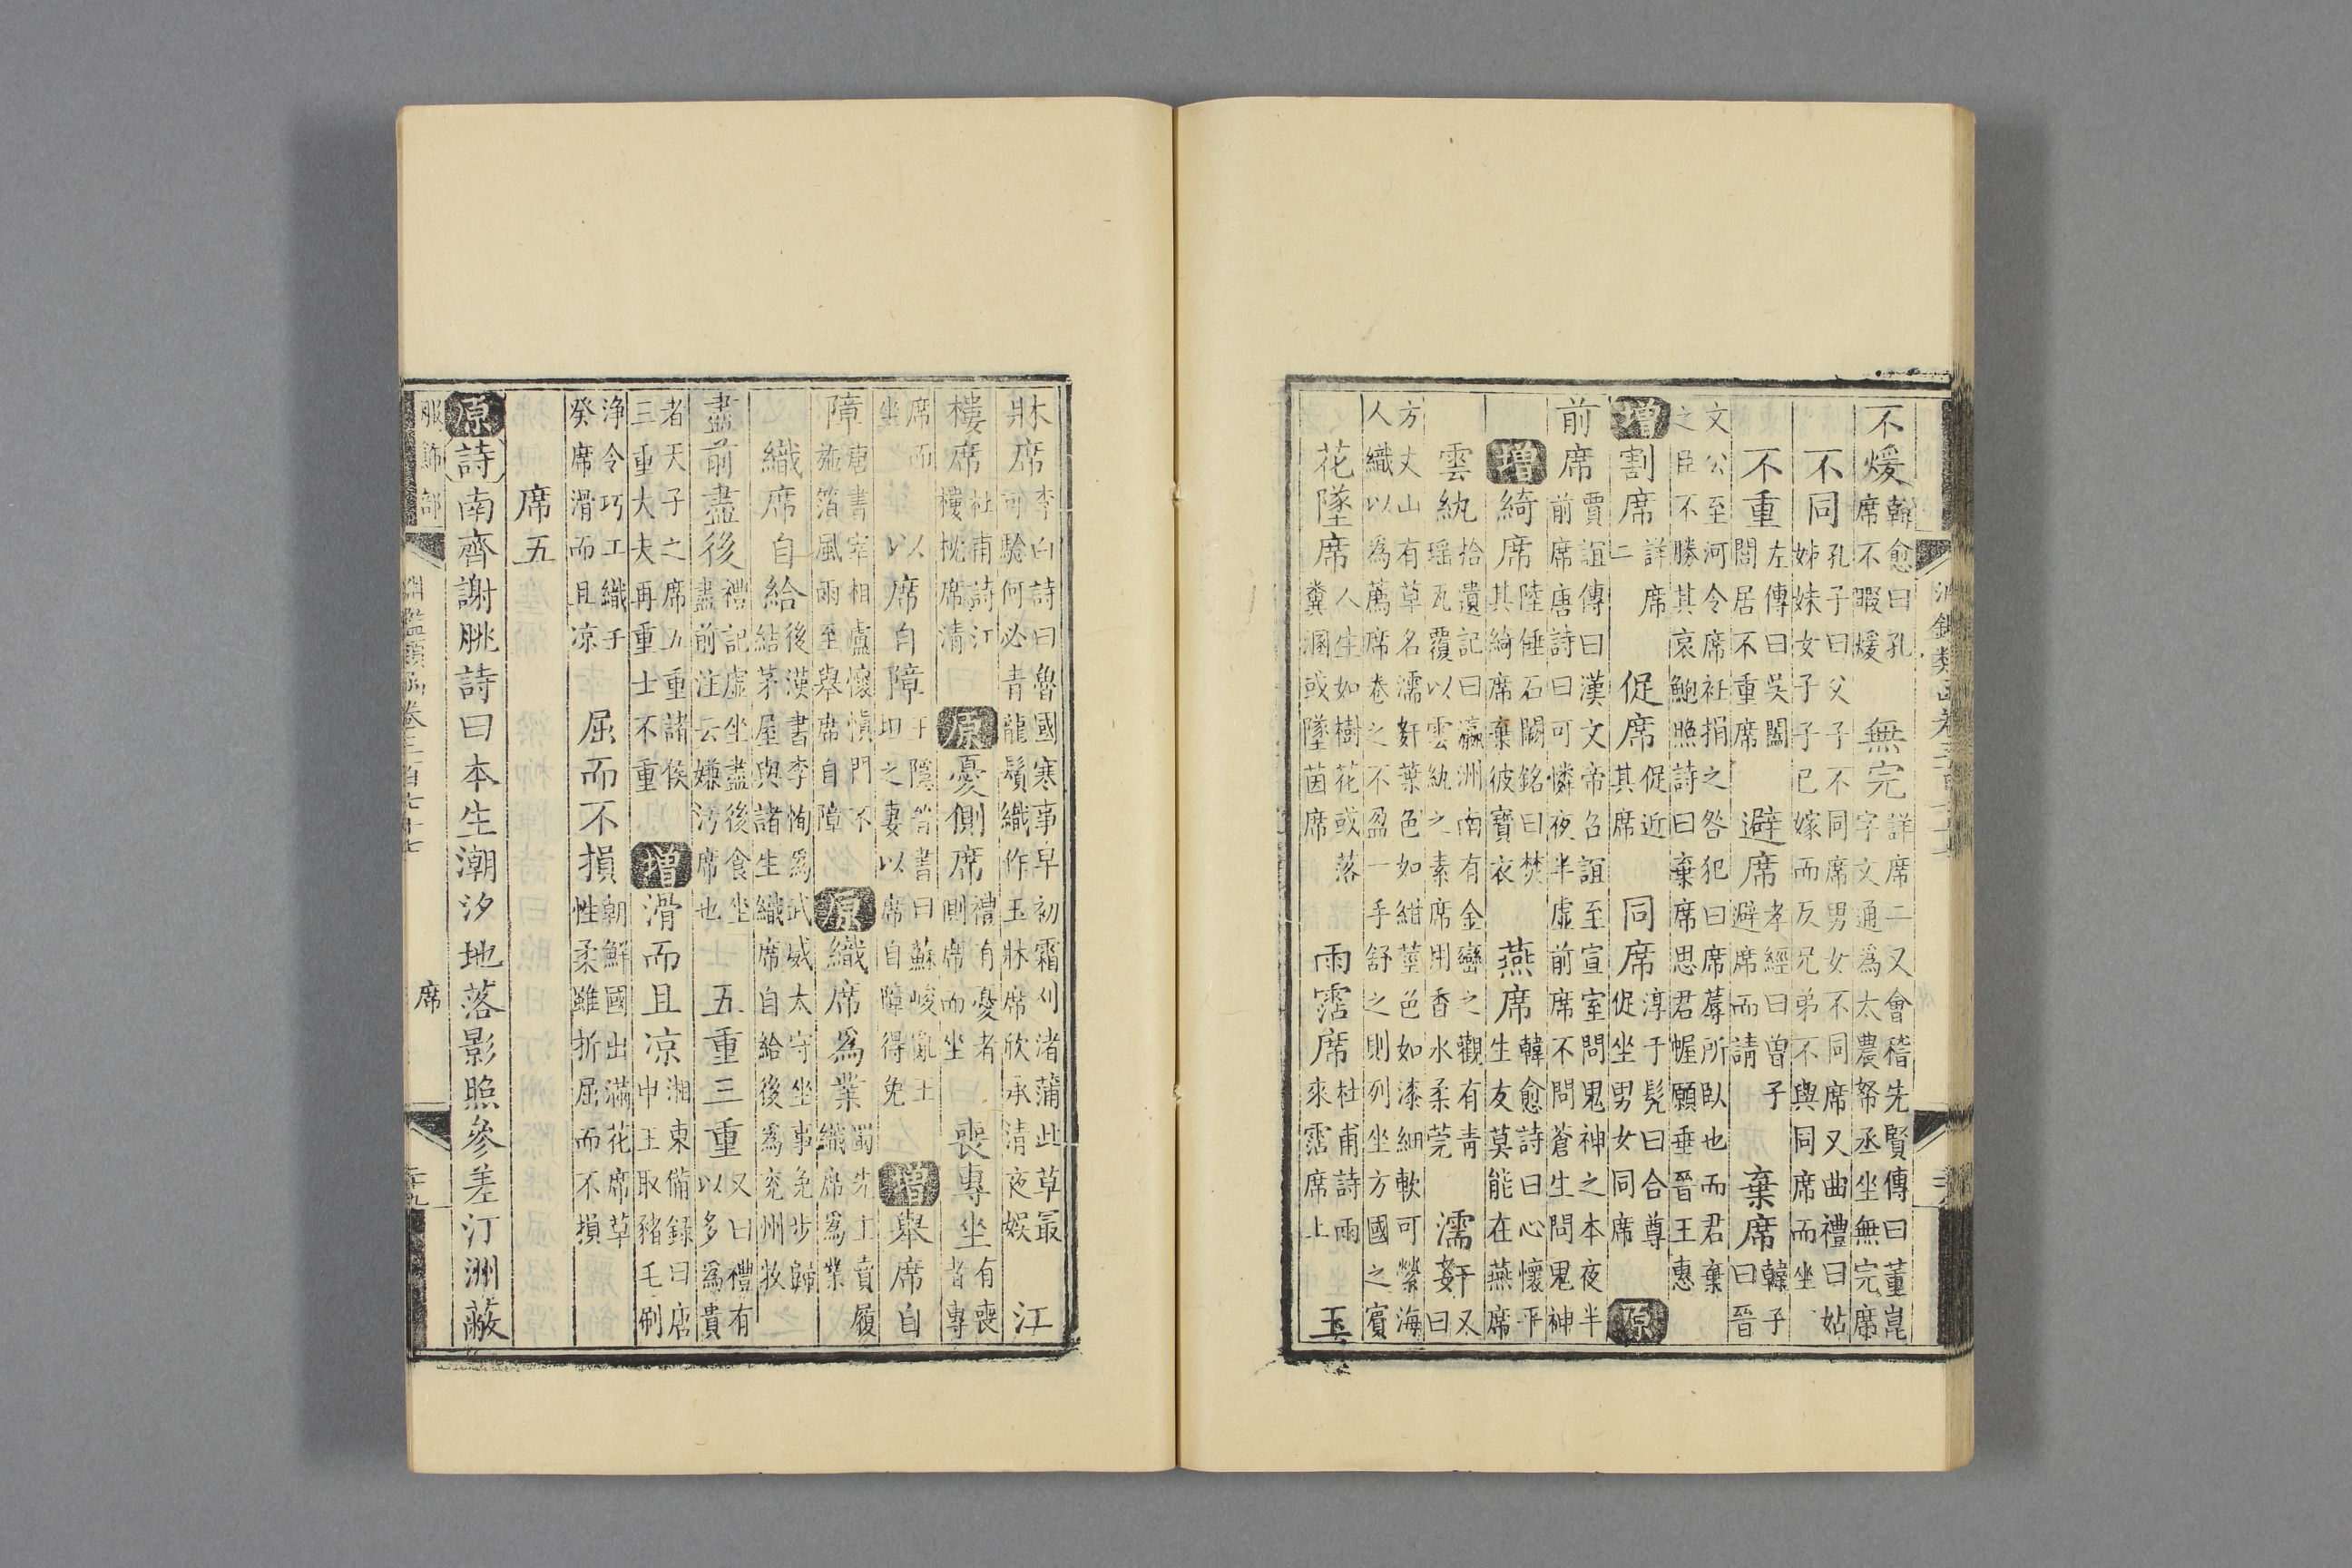 不煖韓愈曰孔席不暇煖 無完詳席二又會稽先賢傳曰董崑字文通為太農帑丞坐無完席
不同孔子曰父子不同席男女不同席又曲禮曰姑姊妹女子子已嫁而反兄弟不與同席而坐
不重左傳曰吳闔閭居不重席 避席孝經曰曾子避席而請 棄席韓子曰晉
文公至河令席衽捐之咎犯曰席蓐所臥也而君棄之臣不勝其哀鮑照詩曰棄席思君幄願垂晉王惠
増割席詳席二 促席促近其席 同席淳于髠曰合尊促坐男女同席 原
前席賈誼傳曰漢文帝召誼至宣室問鬼神之本夜半前席唐詩曰可憐夜半虛前席不問蒼生問鬼神
増綺席陸倕石闕銘曰焚其綺席棄彼寶衣 燕席韓愈詩曰心懷平生友莫能在燕席
雲紈拾遺記曰瀛洲南有金巒之觀有青瑶瓦覆以雲紈之素席用香水柔莞 濡姧又曰
方丈山有草名濡姧葉色如紺莖色如漆細軟可縈海人織以為薦席卷之不盈一手舒之則列坐方國之賓
花墜席人生如樹花或落糞溷或墜茵席 雨霑席杜甫詩雨來霑席上 玉
牀席李白詩曰魯國寒事早初霜刈渚蒲此草最可驗何必青龍鬚織作玉牀席欣承清夜娱 江
樓席杜甫詩江樓枕席清 原憂側席禮有憂者側席而坐 喪專坐有喪者專
席而坐 以席自障王隱晉書曰蘇峻亂王坦之妻以席自障得免 増舉席自
障唐書宰相盧懷慎門不施箔風雨至舉席自障 原織席爲業蜀先主賣履織席爲業
織席自給後漢書李恂爲武威太守坐事免步歸結茅屋與諸生織席自給後為兗州牧
盡前盡後禮記虛坐盡後食坐盡前注云嫌汚席也 五重三重又曰禮有以多為貴
者天子之席五重諸侯三重大夫再重士不重 増滑而且凉湘東備録曰店中王取豬毛刷
浄令巧工織于癸席滑而且凉 屈而不損朝鮮國出滿花席草性柔雖折屈而不損
席五
原詩南齊謝朓詩曰本生潮汐地落影照參差汀洲蔽
服飾部 淵鑑類函卷三百七十七 席